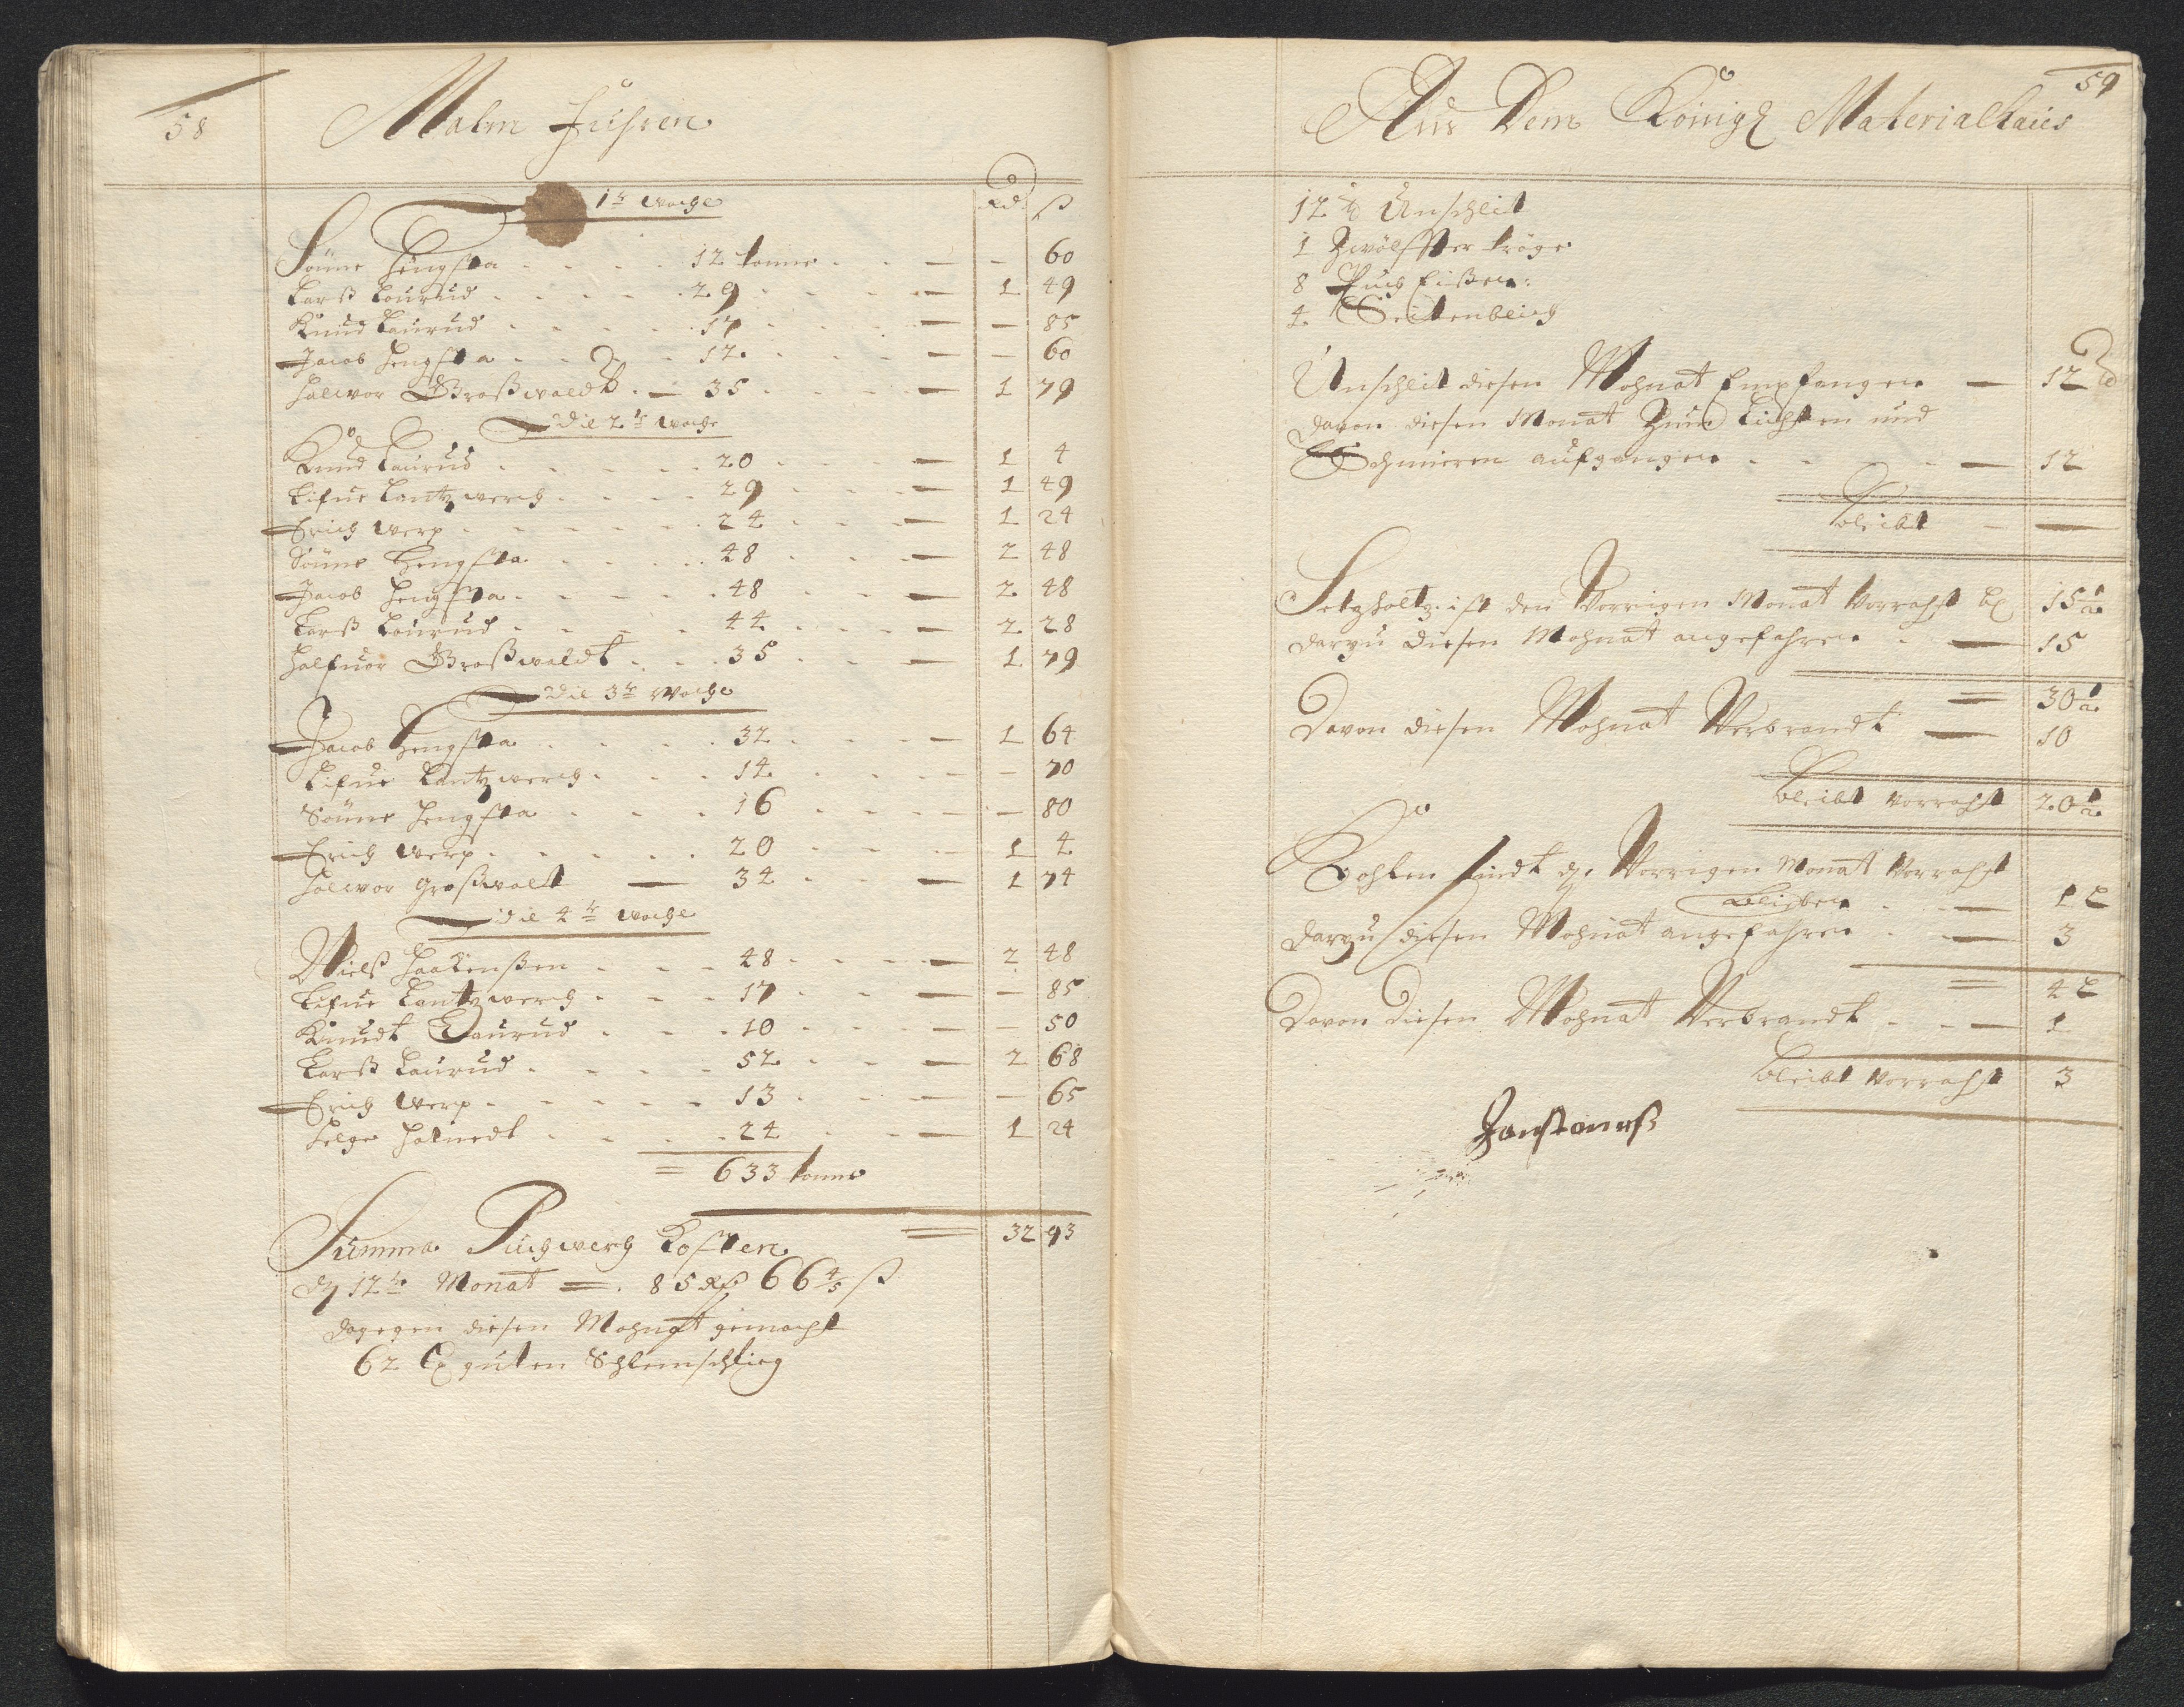 58
Malm Fuhren
Rd ß
1te Woche
Sönne Hengsta 12 tonne — 60
Larß Laurud 29 — 1 49
Knud Laurud 17 — 85
Jacob Hengsta 12 — 60
Halwor Großwaldt — 35 — 1 79
Die 2te Woche
Knud Laurud 20 — 1 4
Lifue Lantzwerch 29 — 1 49
Erich Werp 24 — 1 24
Sönne Hengsta 48 — 2 48
Jacob Hengsta 48 — 2 48
Larß Laurud 44 — 2 28
Halfuor Großwaldt 35 — 1 79
Die 3te Woche
Jacob Hengsta 32 — 1 64
Lifue Lantzwerch 14 — 70
Sönne Hengsta 16 — 80
Erich Werp 20 — 1 4
Halwor Großwalt — 34 — 1 74
Die 4te Woche
Nielß Haakenßen 48 — 2 48
Lifue Lantzwerch 17 — 85
Knudt Laurud 10 — 50
Larß Laurud 52 — 2 68
Erich Werp 13 — 65
Helge Halnedt 24 — 1 24
= 633 tonne
Summa Puchwerch Kosten = 32 93
dZ 12te Monat = 85 Rß 66 4/5 ß
dagegen diesen Mohnat gemacht
62 C guten Schlemschlieg
59
Aus Dem Königl Materialhaus
12 ℔ Unschleit
1 Zwölffter tröge
8 Puch Eißen:
4 Seitenblech
Unschleit diesen Mohnat Empfangen — 12 ℔
davon diesen Monat Zum Lichten und
Schmieren aufgangen — 12
bleibt —
Setzholtz ist den Vorrigen Monat Vorraht bl 15
darzu diesen Mohnat angefahren — 15
= 30
Davon diesen Mohnat Verbrandt — 10
bleibt Vorraht 20
Kohlen sindt d. Vorrigen Monat Vorraht
blieben — 1 L
darzu diesen Mohnat angefahren — 3
= 4 L
Davon diesen Mohnat Verbrandt — 1
bleibt Vorraht 3